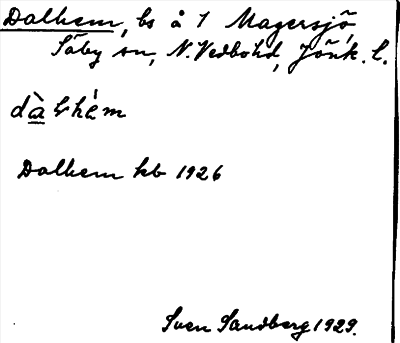 Dalhem, bs å 1 Magersjö,
Säby sn, N. Vedbohd, Jönk. l.
Dalhem kb 1926
Sven Sandberg 1929.